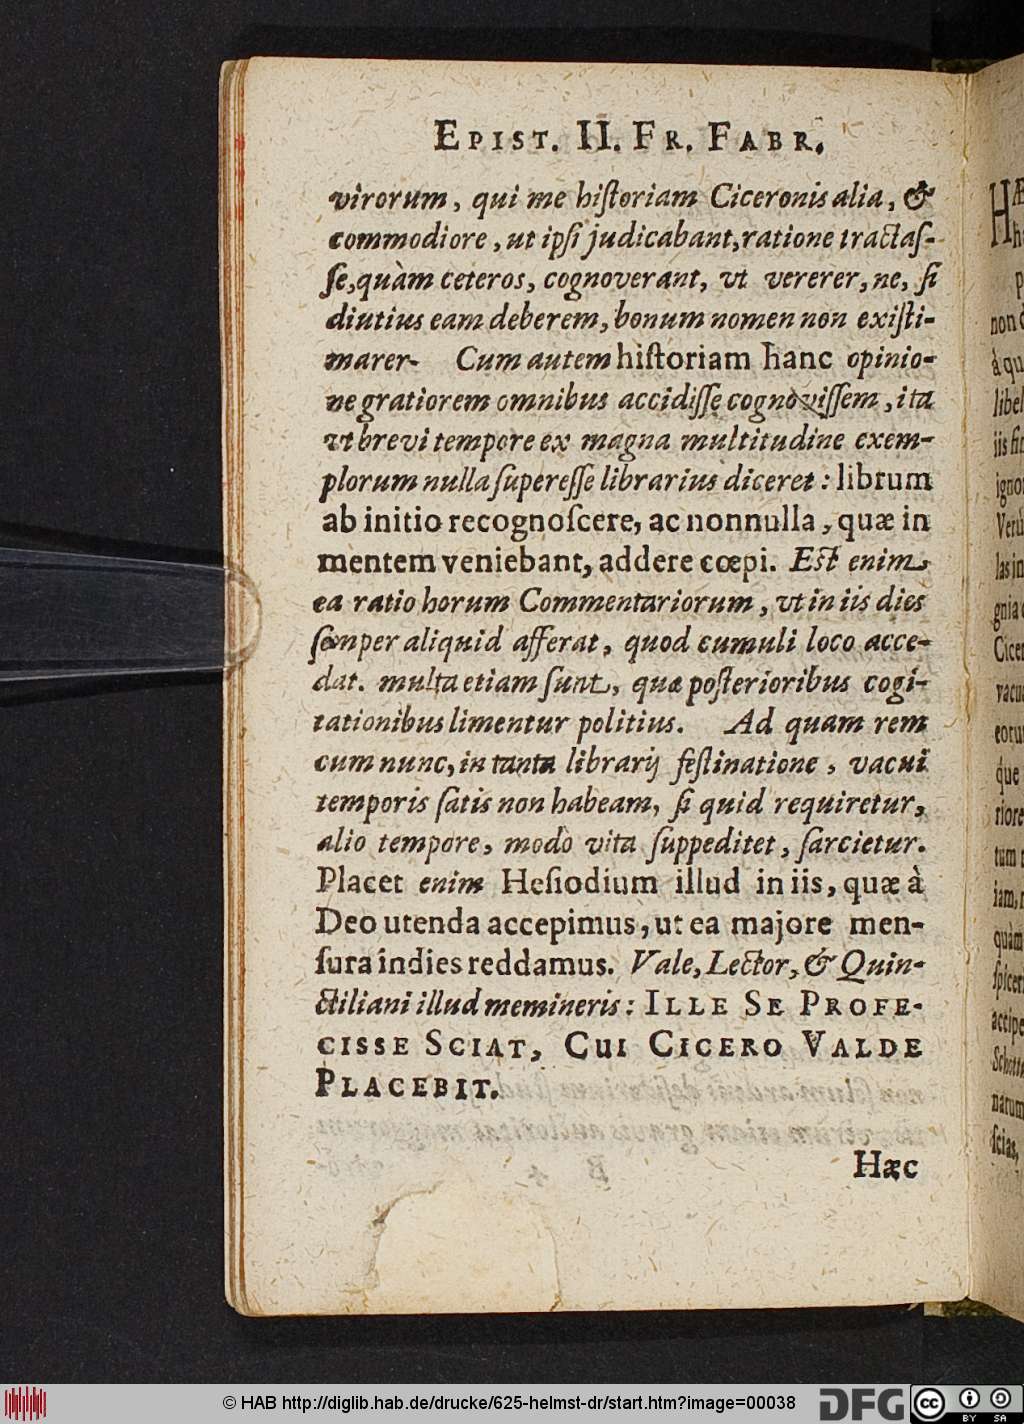 EPIST. II. FR. FABR.
virorum, qui me hiſtoriam Ciceronis alia, &
commodiore, ut ipſi judicabant, ratione tractaſ-
ſe, quàm ceteros, cognoverant, vt vererer, ne, ſi
diutius eam deberem, bonum nomen non exiſti-
marer. Cum autem hiſtoriam hanc opinio-
ne gratiorem omnibus accidiſſe cognoviſſem, ita
vt brevi tempore ex magna multitudine exem-
plorum nulla ſupereſſe librarius diceret: librum
ab initio recognoſcere, ac nonnulla, quæ in
mentem veniebant, addere cœpi. Eſt enim
ea ratio horum Commentariorum, vt in iis dies
ſemper aliquid afferat, quod cumuli loco acce-
dat. multa etiam ſunt, quæ poſterioribus cogi-
tationibus limentur politius. Ad quam rem
cum nunc, in tanta librarij feſtinatione, vacui
temporis ſatis non habeam, ſi quid requiretur,
alio tempore, modò vita ſuppeditet, ſarcietur.
Placet enim Heſiodium illud in iis, quæ à
Deo utenda accepimus, ut ea majore men-
ſura indies reddamus. Vale, Lector, & Quin-
ctiliani illud memineris: ILLE SE PROFE-
CISSE SCIAT, CUI CICERO VALDE
PLACEBIT.
Hæc
non
à qu
libel
iis
Cicer
que
quàm
accipe
ſcias,
© HAB http://diglib.hab.de/drucke/625-helmst-dr/start.htm?image=00038
DFG
cc
BY SA